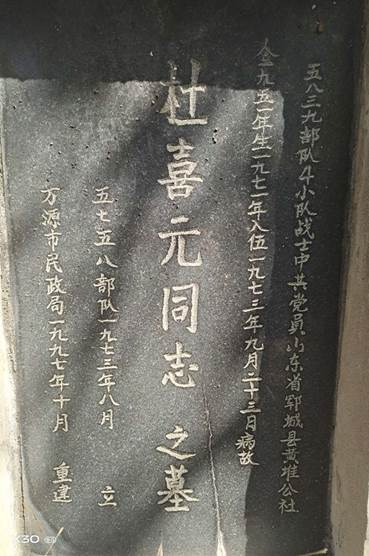 五八三九部队4小队战士中共党员山东省郓城县黄堆公社
全一九五一年生一九七一年入伍一九七三年九月二十三日病故
杜喜元同志之墓
五七五八部队一九七三年八月 立
万源市民政局一九九七年十月 重建
K30